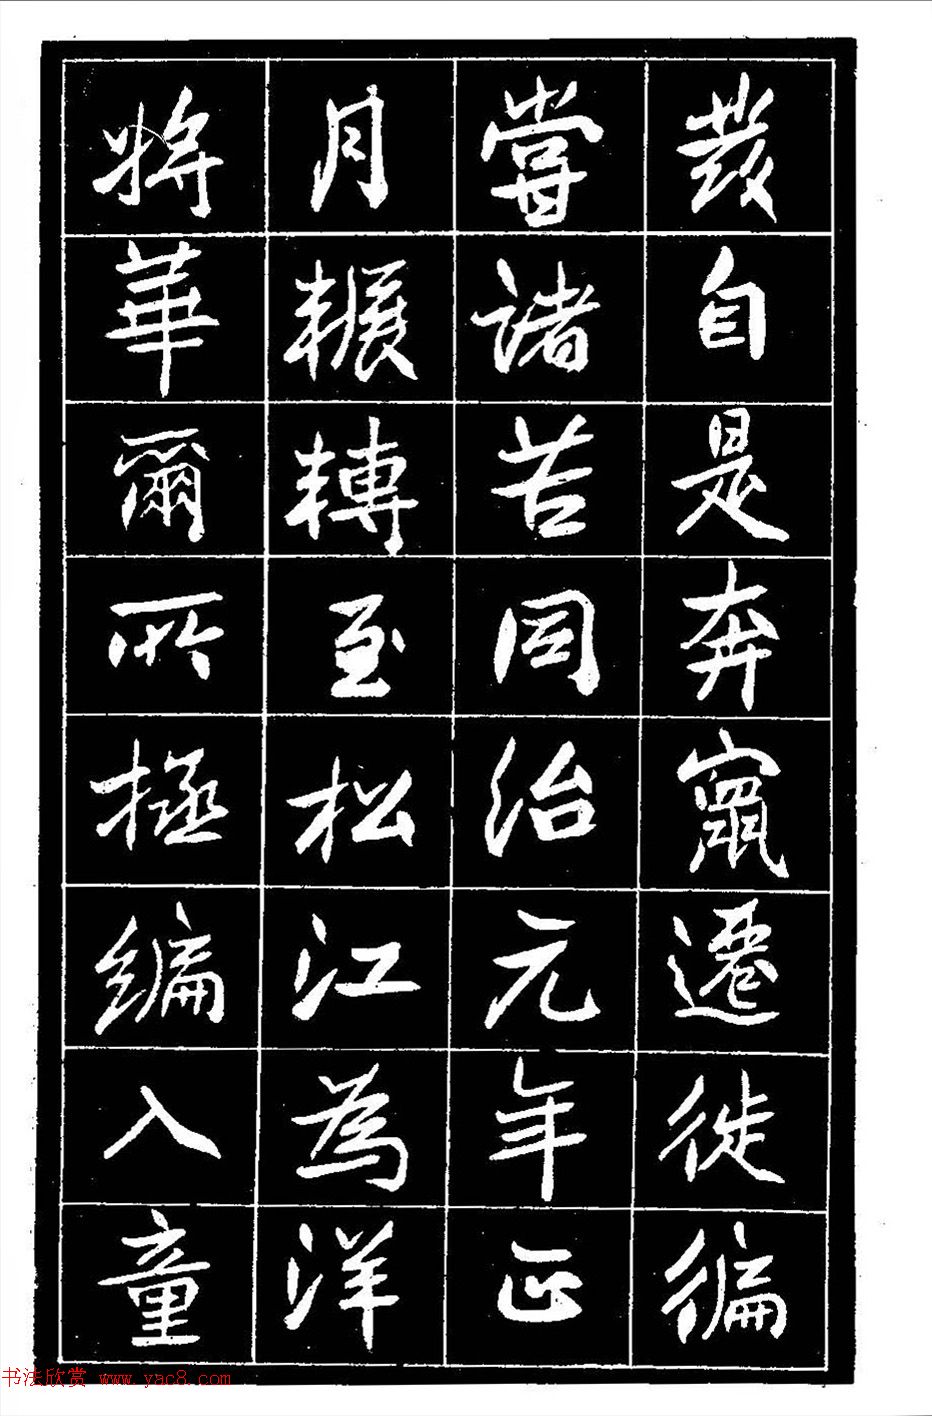 發自是奔竄遷徙徧
嘗諸苦同治元年正
月輾轉至松江為洋
將華爾所拯編入童
书法欣赏 www.yac8.com